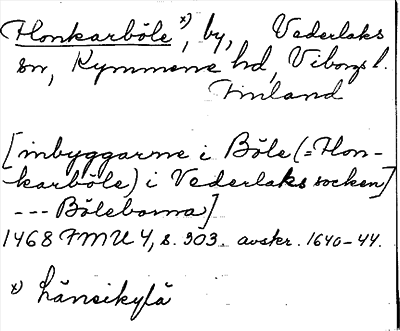 Honkarböle x), by, Vederlaks
sn, Kymmene hd, Viborgs l.
Finland
[inbyggarne i Böle (=Hon-
karböle) i Vederlaks socken]
--- Böleboarna]
1468 FMU 4, s. 303. avskr. 1640-44.
x) Länsikylä